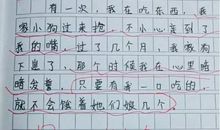 有一次，我在吃东西，我
家小狗过来抢，不小心走到了
我的嘴，过了几个月，我家狗
下崽了，那个时候我在心里暗
暗发誓，只要有我一口吃的，
就不会饿着她们娘几个